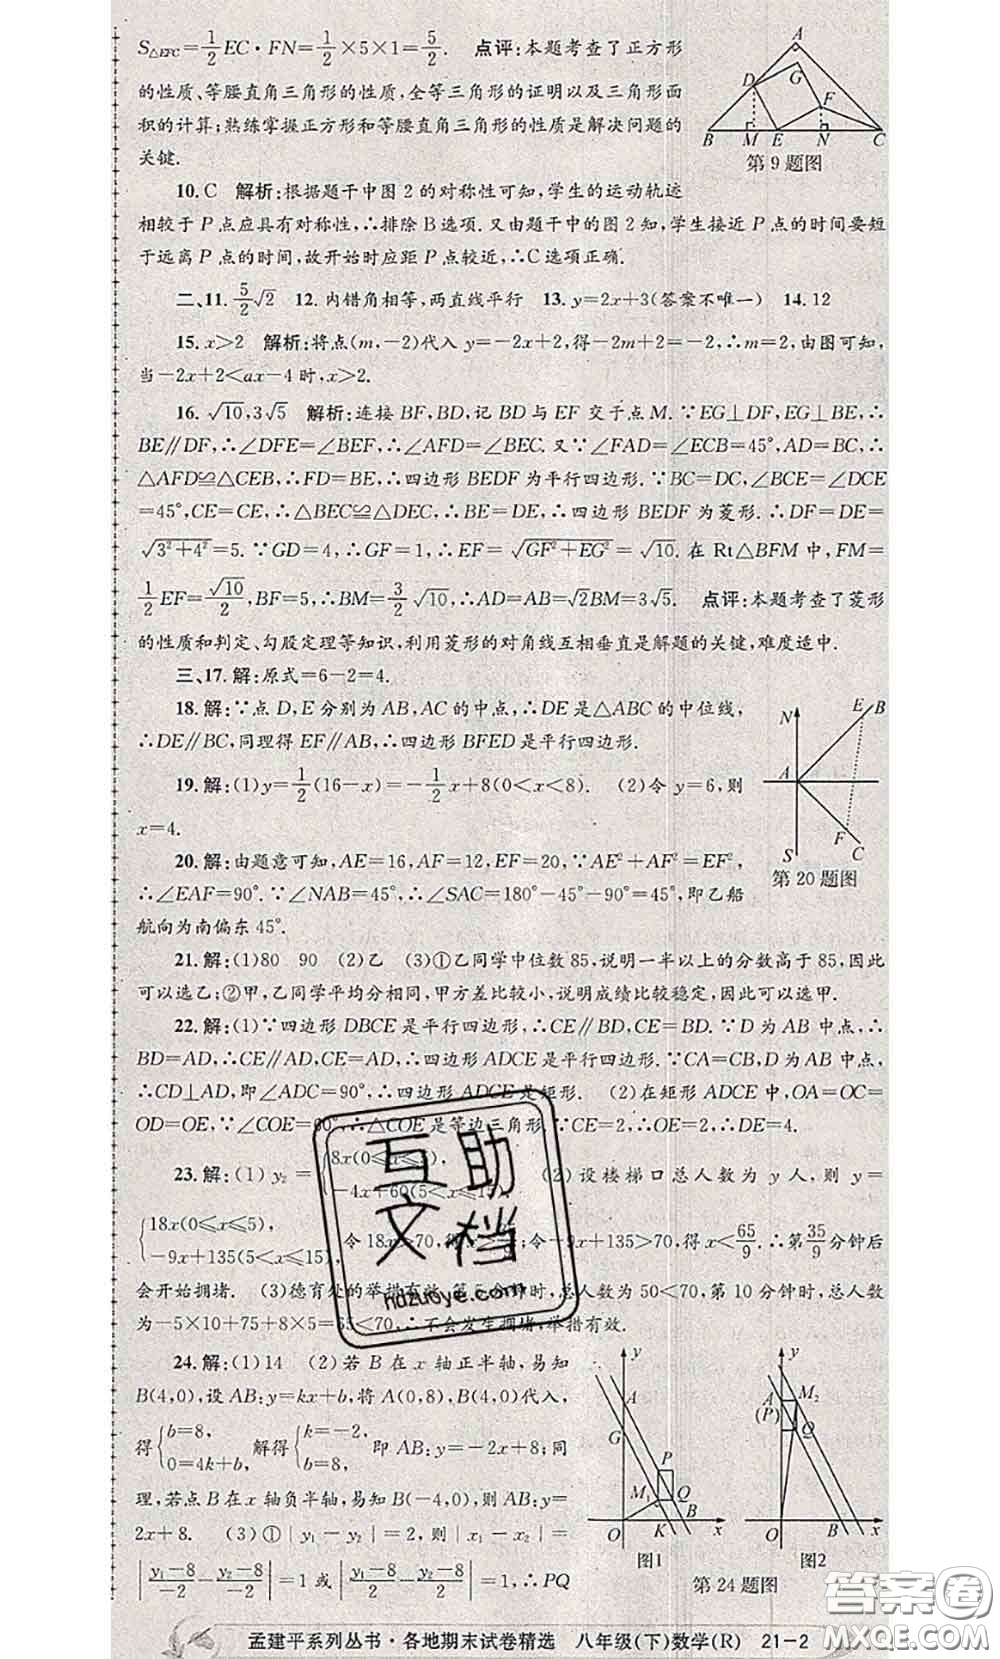 S△EFC=1/2EC·FN=1/2×5×1=5/2. 点评:本题考查了正方形
的性质、等腰直角三角形的性质,全等三角形的证明以及三角形面
积的计算;熟练掌握正方形和等腰直角三角形的性质是解决问题的
关键.
A
D
G
F
B M E N C
第9题图
10.C 解析:根据题干中图2的对称性可知,学生的运动轨迹
相较于P点应具有对称性,∴排除B选项.又由题干中的图2知,学生接近P点的时间要短
于远离P点的时间,故开始时应距P点较近,∴C选项正确.
二、11.5/2√2 12.内错角相等,两直线平行 13.y=2x+3(答案不唯一) 14.12
15.x>2 解析:将点(m,-2)代入y=-2x+2,得-2m+2=-2,∴m=2,由图可知,
当-2x+2<ax-4时,x>2.
16.√10,3√5 解析:连接BF,BD,记BD与EF交于点M.∵EG⊥DF,EG⊥BE,∴
BE∥DF,∴∠DFE=∠BEF,∴∠AFD=∠BEC.又∵∠FAD=∠ECB=45°,AD=BC,∴
△AFD≌△CEB,∴FD=BE,∴四边形BEDF为平行四边形.∵BC=DC,∠BCE=∠DCE
=45°,CE=CE,∴△BEC≌△DEC,∴BE=DE,∴四边形BEDF为菱形.∴DF=DE=
√(3²+4²)=5.∵GD=4,∴GF=1,∴EF=√(GF²+EG²)=√10.在Rt△BFM中,FM=
1/2EF=√10/2,BF=5,∴BM=3/2√10,∴AD=AB=√2BM=3√5. 点评:本题考查了菱形
的性质和判定、勾股定理等知识,利用菱形的对角线互相垂直是解题的关键,难度适中.
三、17.解:原式=6-2=4.
18.解:∵点D,E分别为AB,AC的中点,∴DE是△ABC的中位线,
∴DE∥BC,同理得EF∥AB,∴四边形BFED是平行四边形.
19.解:(1)y=1/2(16-x)=-1/2x+8(0<x<8). (2)令y=6,则
x=4.
20.解:由题意可知,AE=16,AF=12,EF=20,∵AE²+AF²=EF²,
∴∠EAF=90°.∵∠NAB=45°,∴∠SAC=180°-45°-90°=45°,即乙船
航向为南偏东45°.
N
E B
A
F
S C
第20题图
21.解:(1)80 90 (2)乙 (3)①乙同学中位数85,说明一半以上的分数高于85,因此
可以选乙;②甲,乙同学平均分相同,甲方差比较小,说明成绩比较稳定,因此可以选甲.
22.解:(1)∵四边形DBCE是平行四边形,∴CE∥BD,CE=BD.∵D为AB中点,∴
BD=AD,∴CE∥AD,CE=AD,∴四边形ADCE是平行四边形.∵CA=CB,D为AB中点,
∴CD⊥AD,即∠ADC=90°,∴四边形ADCE是矩形. (2)在矩形ADCE中,OA=OC=
OD=OE,∵∠COE=60°,∴△COE是等边三角形.∵CE=2,∴OE=2,∴DE=4.
23.解:(1)y₂={8x(0≤x≤5), -4x+60(5<x≤15). (2)设楼梯口总人数为y人,则y=
{18x(0≤x≤5), -9x+135(5<x≤15), 令18x>70,得x>;令-9x+135>70,得x<65/9.∴第35/9分钟后
会开始拥堵. (3)德育处的举措有效.第5分钟时,总人数为50<70,第10分钟时,总人数
为-5×10+75+8×5=65<70,∴不会发生拥堵,举措有效.
24.解:(1)14 (2)若B在x轴正半轴,易知
B(4,0),设AB:y=kx+b,将A(0,8),B(4,0)代入,
得{b=8, 0=4k+b, 解得{k=-2, b=8, 即AB:y=-2x+8;同
理,若点B在x轴负半轴,易知B(-4,0),则AB:y=
2x+8. (3)①|y₁-y₂|=2,则|x₁-x₂|=
|(y₁-8)/-2-(y₂-8)/-2|=1或|(y₁-8)/2-(y₂-8)/2|=1,∴PQ
y
A
G
P
M₁ Q
B
O K x
图1
y
A M₂
(P)
Q
O B x
图2
第24题图
互助
文档
hdzuoye.com
答案圈
MXQE.COM
孟建平系列丛书·各地期末试卷精选 八年级(下)数学(R) 21-2